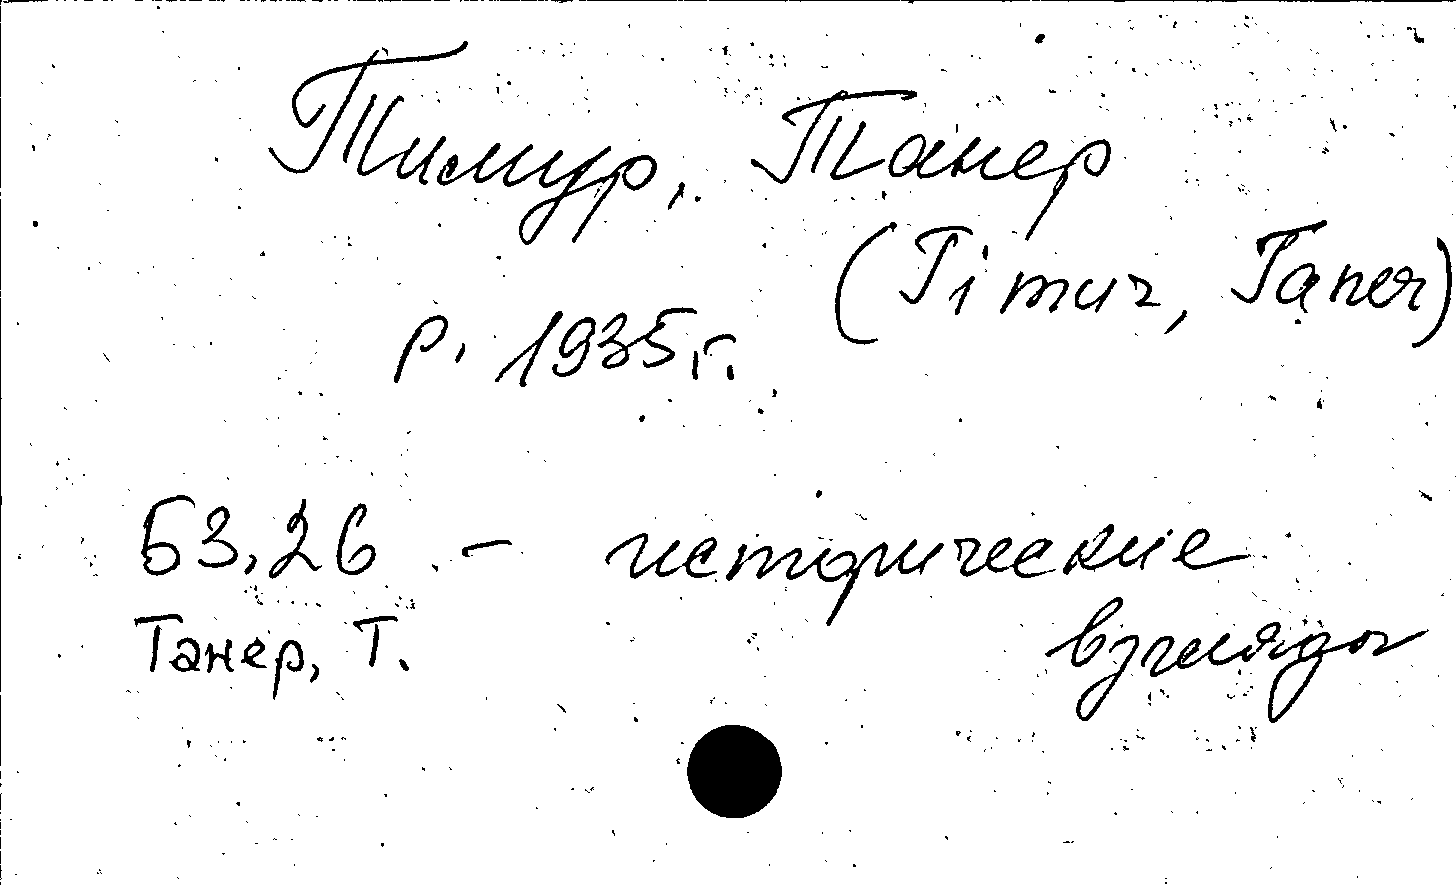 Тимур, Танер
(Timur, Taner)
р. 1935 г.
Б3.26 - исторические
взгляды
Танер, Т.